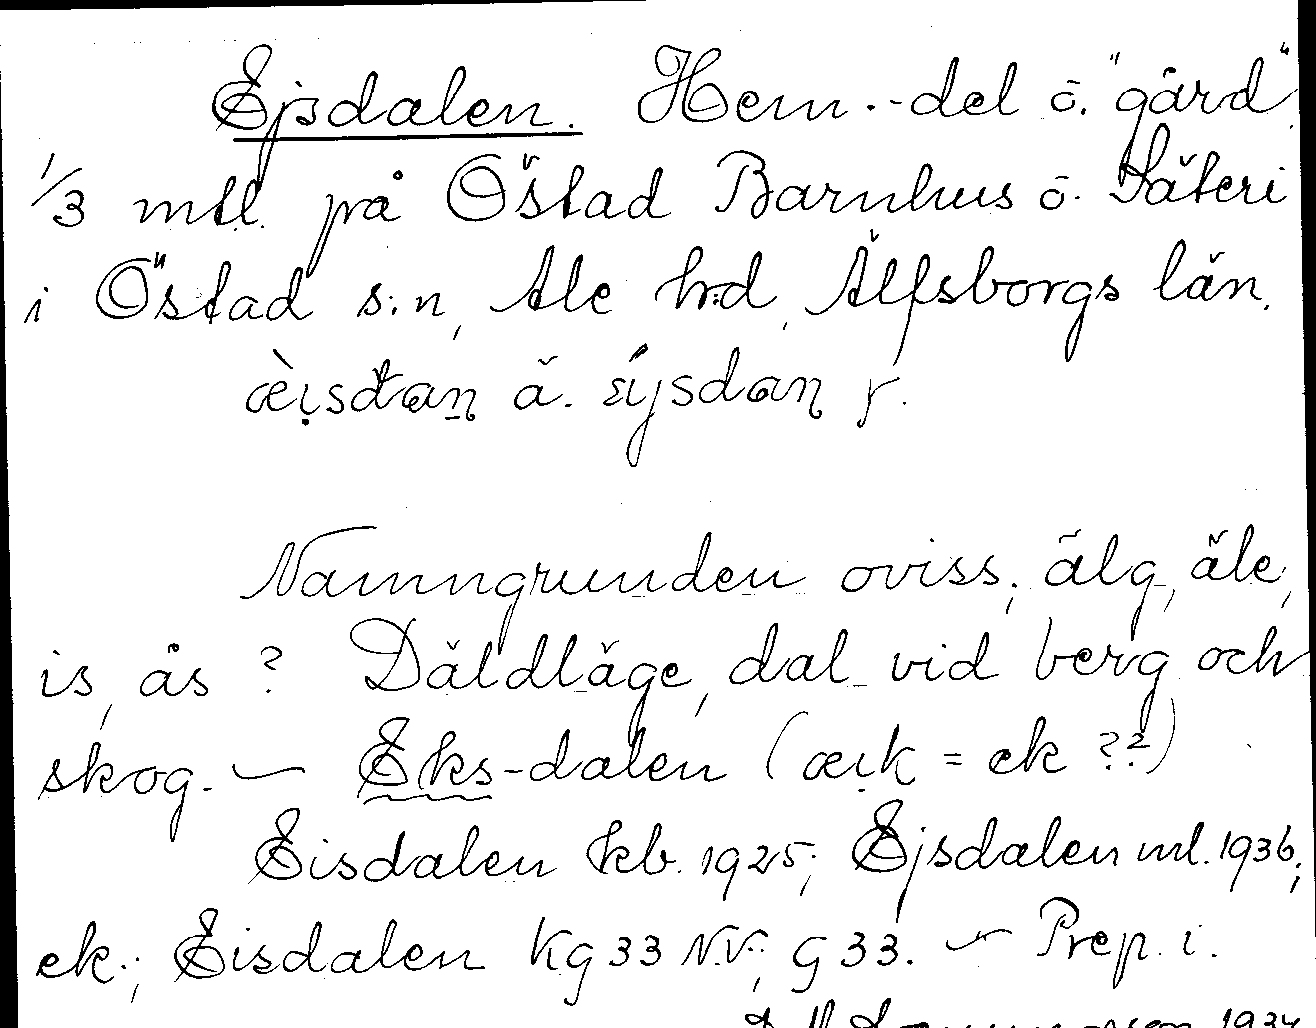 Ejsdalen. Hem.-del o. "gård"
1/3 mtl. på Östad Barnhus o. Säteri
i Östad s:n, Ale h:d, Älfsborgs län.
æ̀i̯sđan ä.
Namngrunden oviss; älg, äle,
is, ås? Däldläge, dal vid berg och
skog. — Eks-dalen (æi̯k = ek ??)
Eisdalen kb. 1925; Ejsdalen ml. 1936;
ek.; Eisdalen Kg 33 N.V.; G 33. — Prep. i.